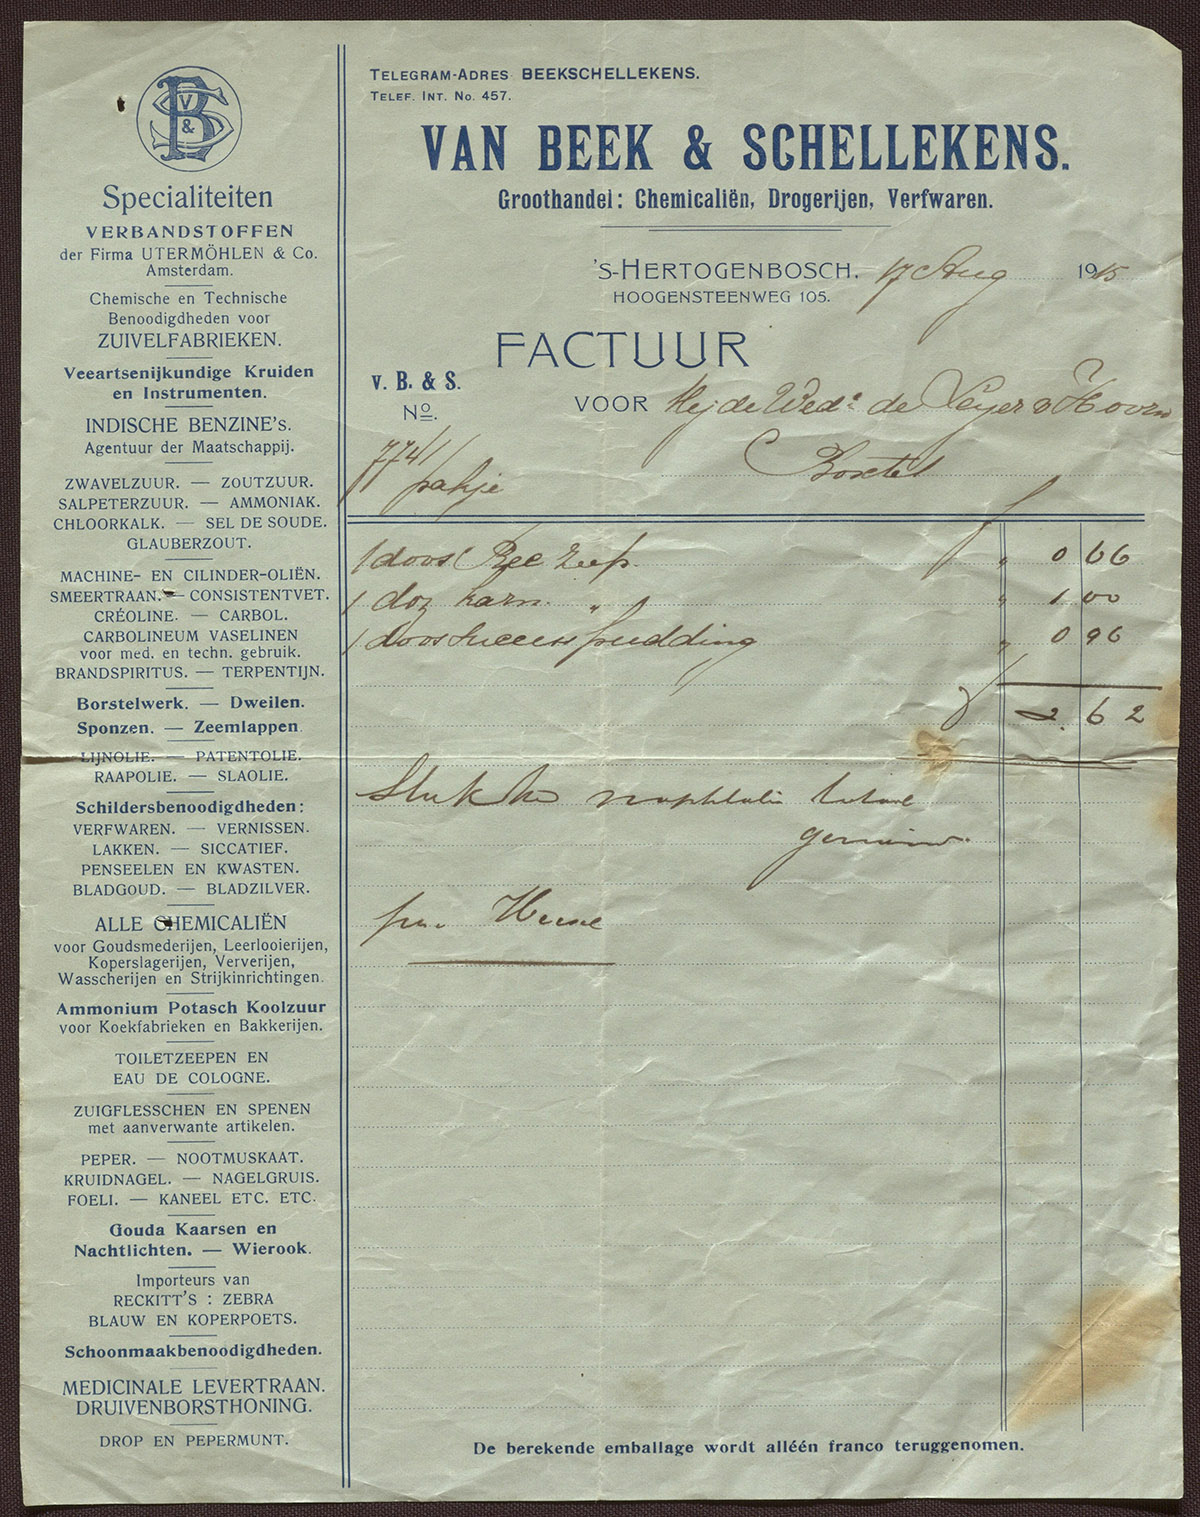 V B & S
Specialiteiten
VERBANDSTOFFEN
der Firma UTERMÖHLEN & Co.
Amsterdam.
Chemische en Technische
Benoodigdheden voor
ZUIVELFABRIEKEN.
Veeartsenijkundige Kruiden
en Instrumenten.
INDISCHE BENZINE's.
Agentuur der Maatschappij.
ZWAVELZUUR. — ZOUTZUUR.
SALPETERZUUR. — AMMONIAK.
CHLOORKALK. — SEL DE SOUDE.
GLAUBERZOUT.
MACHINE- EN CILINDER-OLIËN.
SMEERTRAAN. — CONSISTENTVET.
CRÉOLINE. — CARBOL.
CARBOLINEUM VASELINEN
voor med. en techn. gebruik.
BRANDSPIRITUS. — TERPENTIJN.
Borstelwerk. — Dweilen.
Sponzen. — Zeemlappen.
LIJNOLIE. — PATENTOLIE.
RAAPOLIE. — SLAOLIE.
Schildersbenoodigdheden:
VERFWAREN. — VERNISSEN.
LAKKEN. — SICCATIEF.
PENSEELEN EN KWASTEN.
BLADGOUD. — BLADZILVER.
ALLE CHEMICALIËN
voor Goudsmederijen, Leerlooierijen,
Koperslagerijen, Ververijen,
Wasscherijen en Strijkinrichtingen.
Ammonium Potasch Koolzuur
voor Koekfabrieken en Bakkerijen.
TOILETZEEPEN EN
EAU DE COLOGNE.
ZUIGFLESSCHEN EN SPENEN
met aanverwante artikelen.
PEPER. — NOOTMUSKAAT.
KRUIDNAGEL. — NAGELGRUIS.
FOELI. — KANEEL ETC. ETC.
Gouda Kaarsen en
Nachtlichten. — Wierook.
Importeurs van
RECKITT'S : ZEBRA
BLAUW EN KOPERPOETS.
Schoonmaakbenoodigdheden.
MEDICINALE LEVERTRAAN.
DRUIVENBORSTHONING.
DROP EN PEPERMUNT.
TELEGRAM-ADRES BEEKSCHELLEKENS.
TELEF. INT. No. 457.
VAN BEEK & SCHELLEKENS.
Groothandel: Chemicaliën, Drogerijen, Verfwaren.
'S-HERTOGENBOSCH, 17 Aug 1915
HOOGENSTEENWEG 105.
FACTUUR
v. B. & S.
No.
VOOR Mej de Wed. de Leyer v Hoorn
Boxtel
7741
pakje
1 doos Bee zeep. " 0 66
1 doz karn. " " 1 00
1 doos Succes pudding " 0 96
f 2.62
De berekende emballage wordt alléén franco teruggenomen.